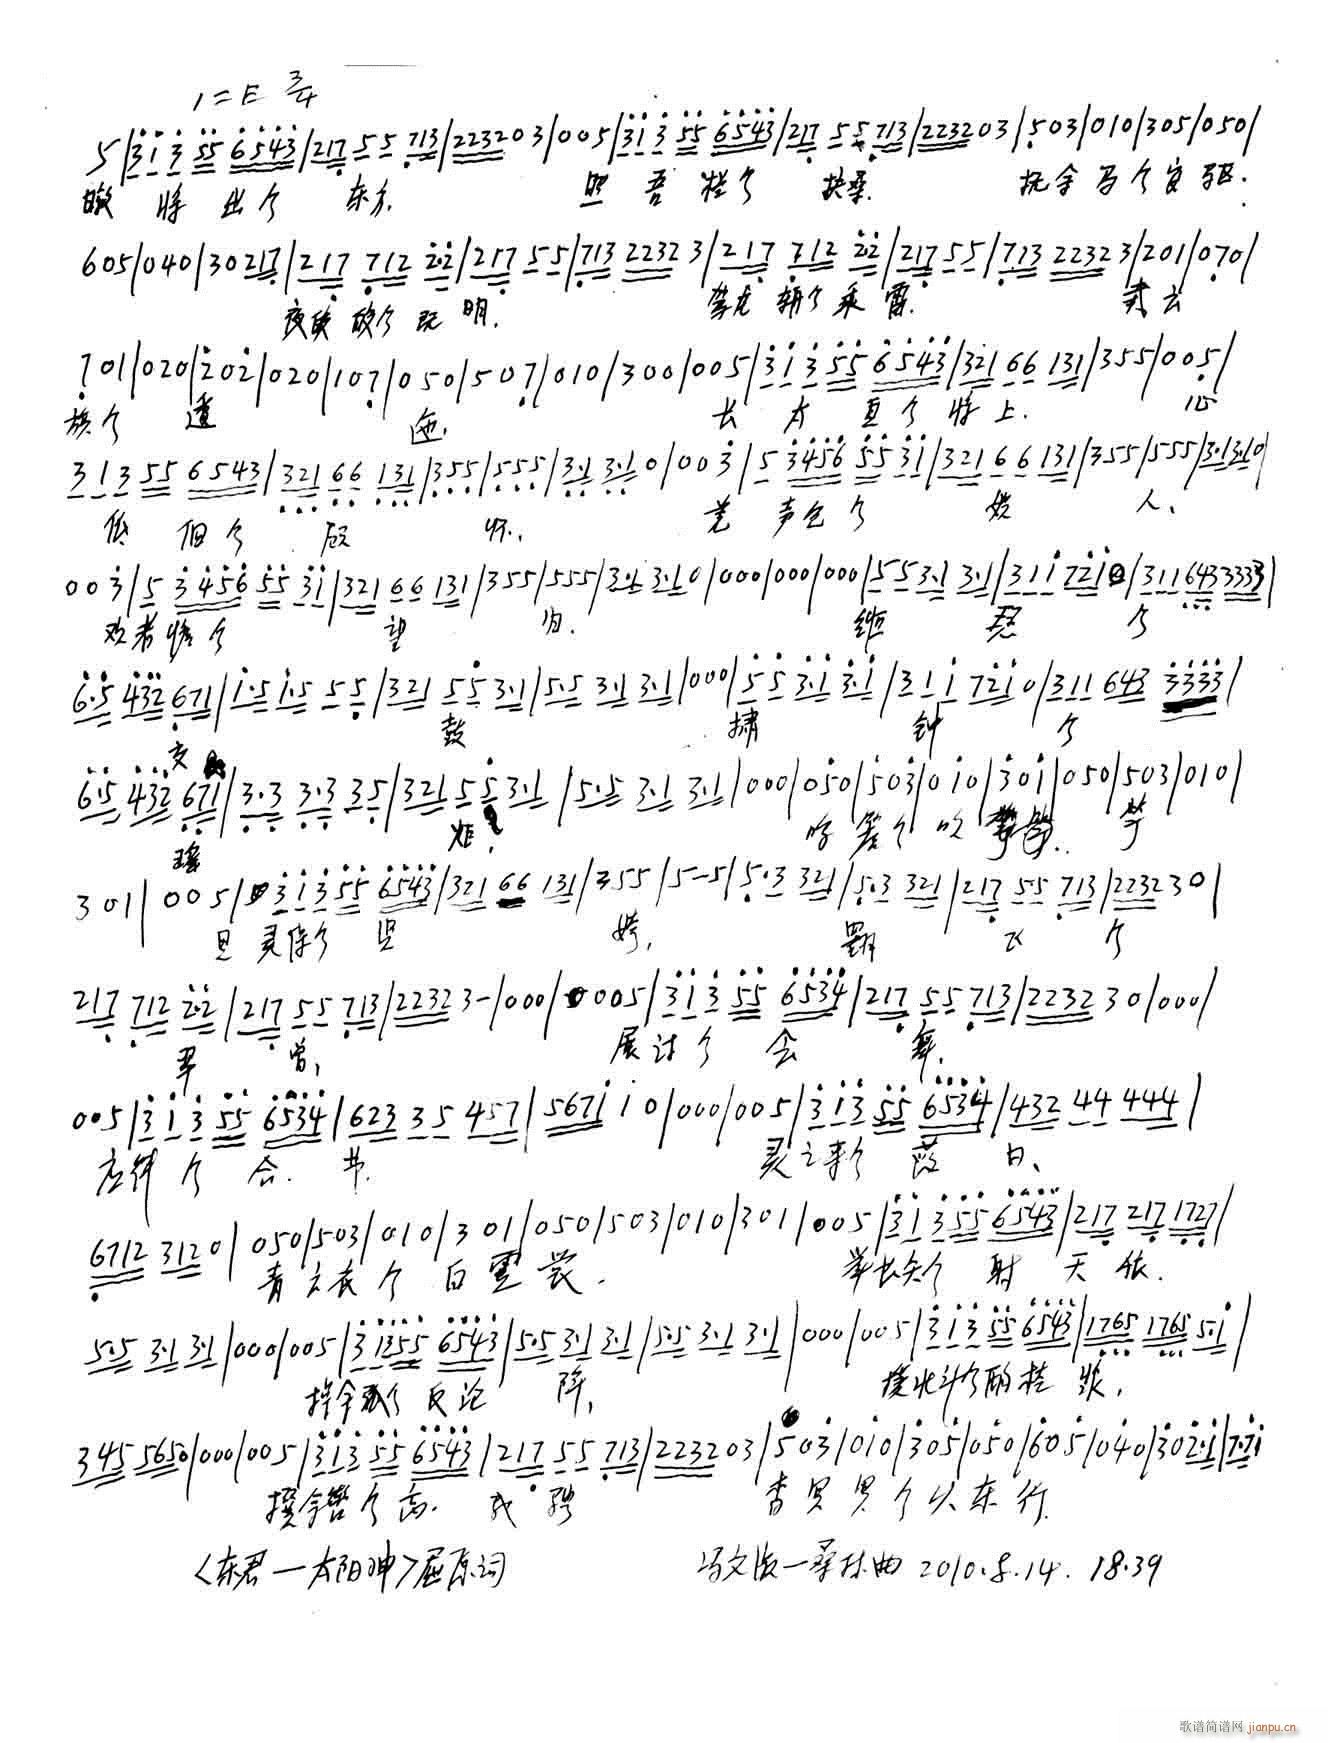 1=E 3/4
5|313 55 6543|217 55 713|2232 03|005|313 55 6543|217 55 713|2232 03|503|010|305|050|
暾 将 出兮 东方, 照 吾 栏兮 扶桑. 抚余马兮安驱.
605|040|30217|217 712 2·2|217 55|713 2232 3|217 712 2·2|217 55|713 2232 3|201|070|
夜皎皎兮既明. 驾龙辀兮乘雷. 载云
701|020|202|020|107|050|507|010|300|005|313 55 6543|321 66 131|355|005|
旗兮 逶 迤. 长太息兮将上. 心
313 55 6543|321 66 131|355|555|3·1 3·1 0|003|5 3456 55 31|321 66 131|355|555|3·1 3·1 0|
低 佪兮 顾 怀, 羌 声色兮 娱 人、
003|5 3456 55 31|321 66 131|355|555|3·1 3·1 0|000|000|000|55 3·1 3·1|311 721 0|311 643 3333|
观者憺兮 望 归. 縆 瑟 兮
6·5 432 671|1·5 1·5 55|321 55 3·1|5·5 3·1 3·1|000|55 3·1 3·1|311 721 0|311 643 3333|
交 鼓 钟 兮
6·5 432 671|3·3 3·3 35|321 55 3·1|5·5 3·1 3·1|000|050|503|010|301|050|503|010|
瑶 兮吹 竽
301|005|313 55 6543|321 66 131|355|5-5|5·3 321|5·3 321|217 55 713|2232 30|
思灵保兮 姱, 飞 兮
217 712 2·2|217 55 713|2232 3-|000|005|313 55 6534|217 55 713|2232 30|000|
翠 曾, 展诗兮 会 舞,
005|313 55 6534|623 35 457|5671 10|000|005|313 55 6534|432 44 444|
应律 兮 合. 节. 灵之来兮 蔽 日、
6712 3120|050|503|010|301|050|503|010|301|005|313 55 6543|217 217 1727|
青云衣兮 白霓裳. 举长矢兮 射 天 狼.
5·5 3·1 3·1|000|005|313 55 6543|5·5 3·1 3·1|5·5 3·1 3·1|000|005|313 55 6543|1765 1765 5·1|
操余弧兮反沦 降, 援北斗兮酌桂 浆,
345 5650|000|005|313 55 6543|217 55 713|2232 03|503|010|305|050|605|040|302·1|7·71
撰余辔兮高. 驰 杳冥冥兮以东行.
<东君—太阳神>屈原词
冯文版—桑林曲 2010.8.14. 18·39
歌谱简谱网 jianpu.cn